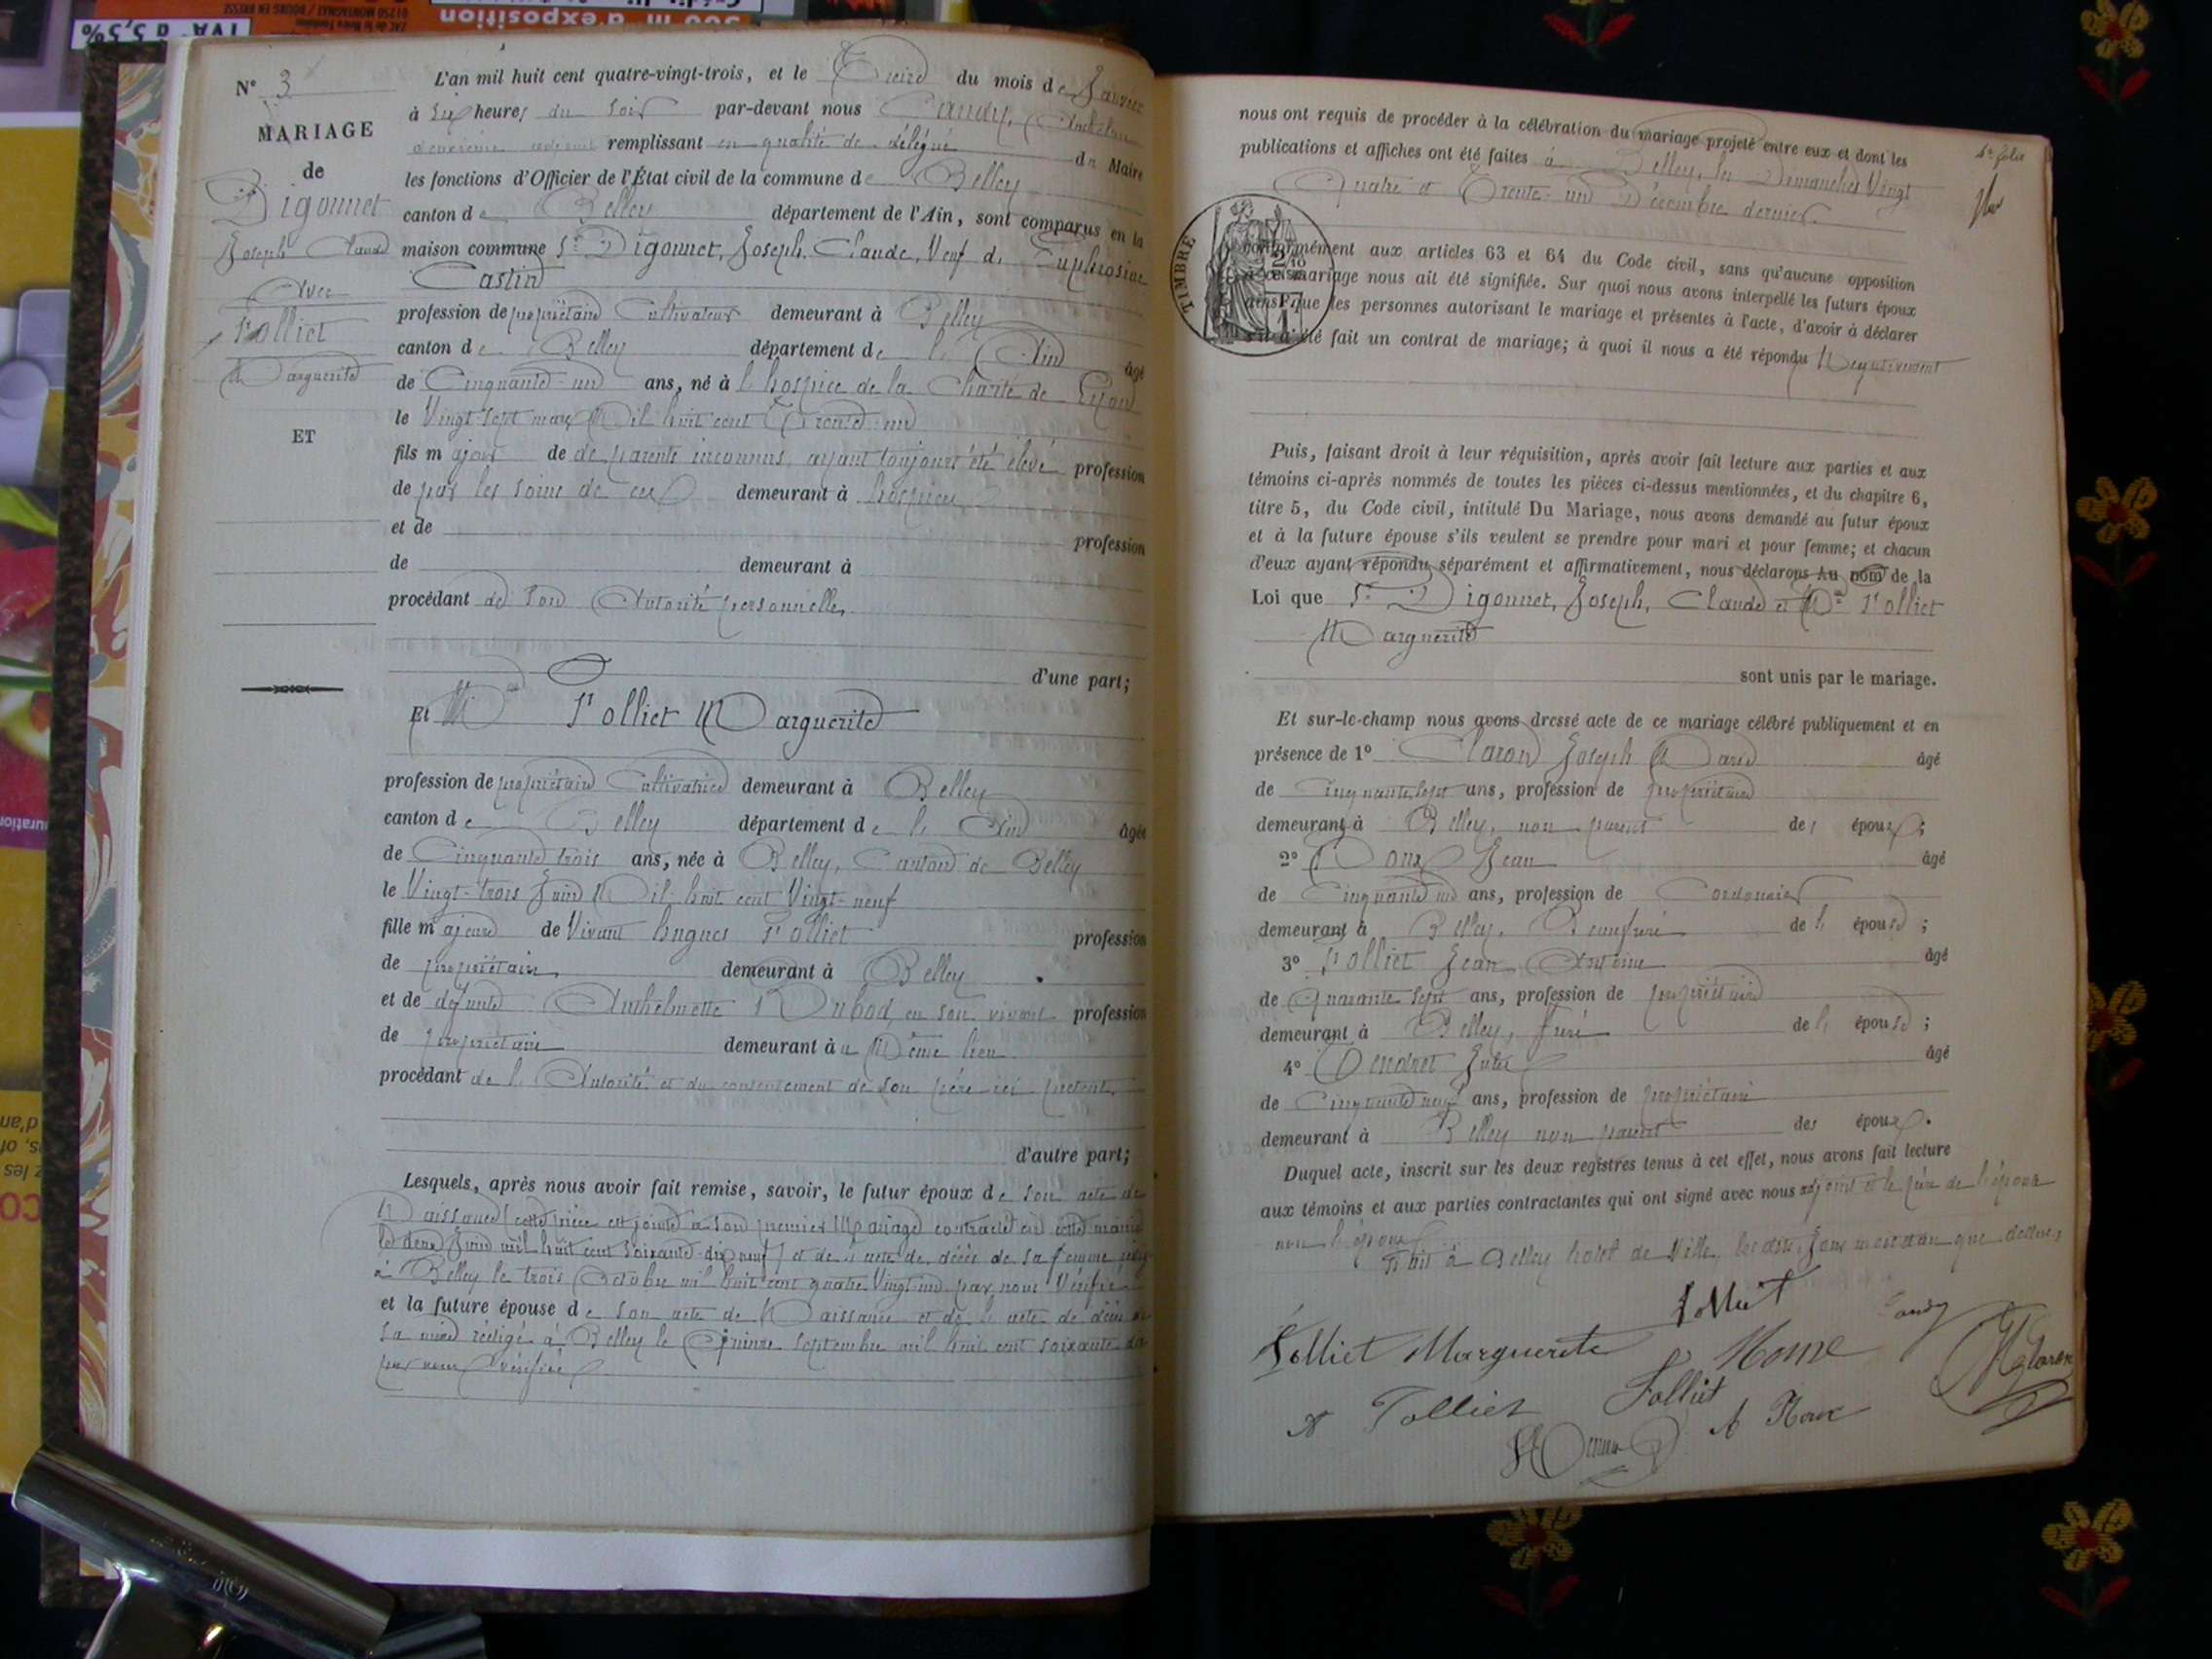 N° 3
MARIAGE
de
Digonnet
Joseph Claude
Avec
Folliet
Marguerite
ET
L'an mil huit cent quatre-vingt-trois, et le Treize du mois de Janvier
à six heures du soir par-devant nous Candy, Anthelme
deuxième adjoint remplissant en qualité de délégué du Maire
les fonctions d'Officier de l'État civil de la commune de Belley
canton de Belley département de l'Ain, sont comparus en la
maison commune Sr Digonnet, Joseph, Claude, Veuf de Euphrosine
Castin
profession de propriétaire Cultivateur demeurant à Belley
canton de Belley département de l' Ain âgé
de Cinquante-un ans, né à l'hospice de la Charité de Lyon
le Vingt-sept mars Mil huit cent Trente-un
fils majeur de de parents inconnus, ayant toujours été élevé profession
de par les soins de ces demeurant à hospices
et de profession
de demeurant à
procédant de son Autorité personnelle,
d'une part;
Et Melle Folliet Marguerite
profession de propriétaire Cultivatrice demeurant à Belley
canton de Belley département de l' Ain âgée
de Cinquante trois ans, née à Belley, Canton de Belley
le Vingt-trois Juin Mil huit cent Vingt-neuf
fille majeure de Vivant hugues Folliet profession
de propriétaire, demeurant à Belley
et de défunte Anthelmette Dubod, en son vivant profession
de propriétaire demeurant au Même lieu
procédant de l' Autorité et du consentement de son père ici présent,
d'autre part;
Lesquels, après nous avoir fait remise, savoir, le futur époux de son acte de
Naissance (cette pièce est jointe à son premier Mariage contracté en cette mairie
le deux Juin mil huit cent soixante-dix neuf) et de l'acte de décès de sa femme
à Belley le trois Octobre mil huit cent quatre Vingt-un par nous Vérifié
et la future épouse de son acte de Naissance et de l'acte de décès de
sa mère rédigé à Belley le Quinze septembre mil huit cent soixante
par nous Vérifiés
5e folio
nous ont requis de procéder à la célébration du mariage projeté entre eux et dont les
publications et affiches ont été faites à Belley, les Dimanches Vingt
Quatre et Trente-un Décembre dernier.
TIMBRE
conformément aux articles 63 et 64 du Code civil, sans qu'aucune opposition
à ce mariage nous ait été signifiée. Sur quoi nous avons interpellé les futurs époux
ainsi que les personnes autorisant le mariage et présentes à l'acte, d'avoir à déclarer
s'il a été fait un contrat de mariage; à quoi il nous a été répondu Négativement
Puis, faisant droit à leur réquisition, après avoir fait lecture aux parties et aux
témoins ci-après nommés de toutes les pièces ci-dessus mentionnées, et du chapitre 6,
titre 5, du Code civil, intitulé Du Mariage, nous avons demandé au futur époux
et à la future épouse s'ils veulent se prendre pour mari et pour femme; et chacun
d'eux ayant répondu séparément et affirmativement, nous déclarons Au nom de la
Loi que Sr Digonnet, Joseph, Claude et Melle Folliet
Marguerite
sont unis par le mariage.
Et sur-le-champ nous avons dressé acte de ce mariage célébré publiquement et en
présence de 1° Claron Joseph Marie âgé
de Cinquante sept ans, profession de propriétaire
demeurant à Belley, non parent des époux;
2° Roux Jean âgé
de Cinquante un ans, profession de Cordonnier
demeurant à Belley, Beaufrère de l' épouse;
3° Folliet Jean, Antoine âgé
de Quarante sept ans, profession de propriétaire
demeurant à Belley, frère de l' épouse;
4° Jules âgé
de Cinquante neuf ans, profession de propriétaire
demeurant à Belley non parent des époux.
Duquel acte, inscrit sur les deux registres tenus à cet effet, nous avons fait lecture
aux témoins et aux parties contractantes qui ont signé avec nous adjoint et le père de l'épouse
non l'époux
Fait à Belley hotel de Ville, les dits Jour mois et an que dessus
Folliet
Candy
Folliet Marguerite
Claron
Folliet
Folliet
Roux